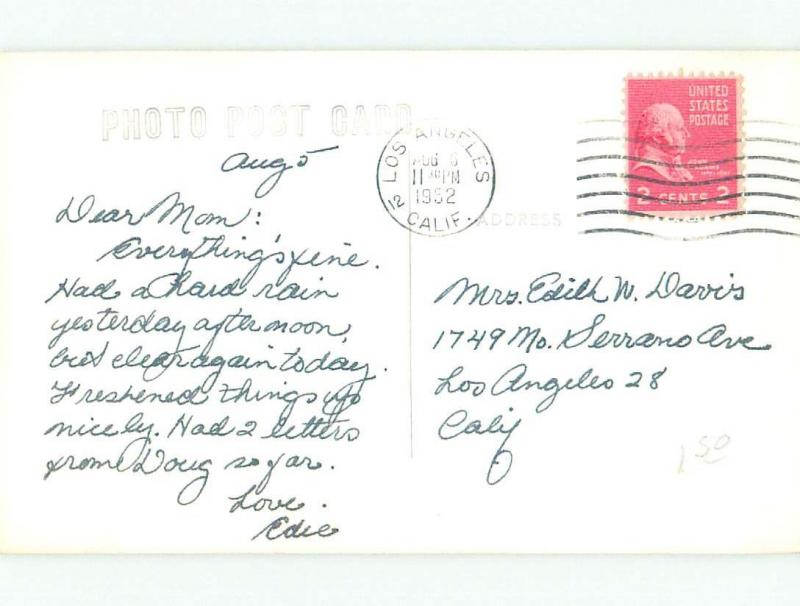 PHOTO POST CARD
Aug 5
Dear Mom:
Everything's fine.
Had a hard rain
yesterday afternoon,
but clear again today.
Freshened things up
nicely. Had 2 letters
from Doug so far.
Love.
Edie
LOS ANGELES
AUG 6
11 PM
1952
12 CALIF.
ADDRESS
UNITED
STATES
POSTAGE
JOHN
ADAMS
2 CENTS 2
Mrs. Edith W. Davis
1749 No. Serrano Ave
Los Angeles 28
Calif
1 50